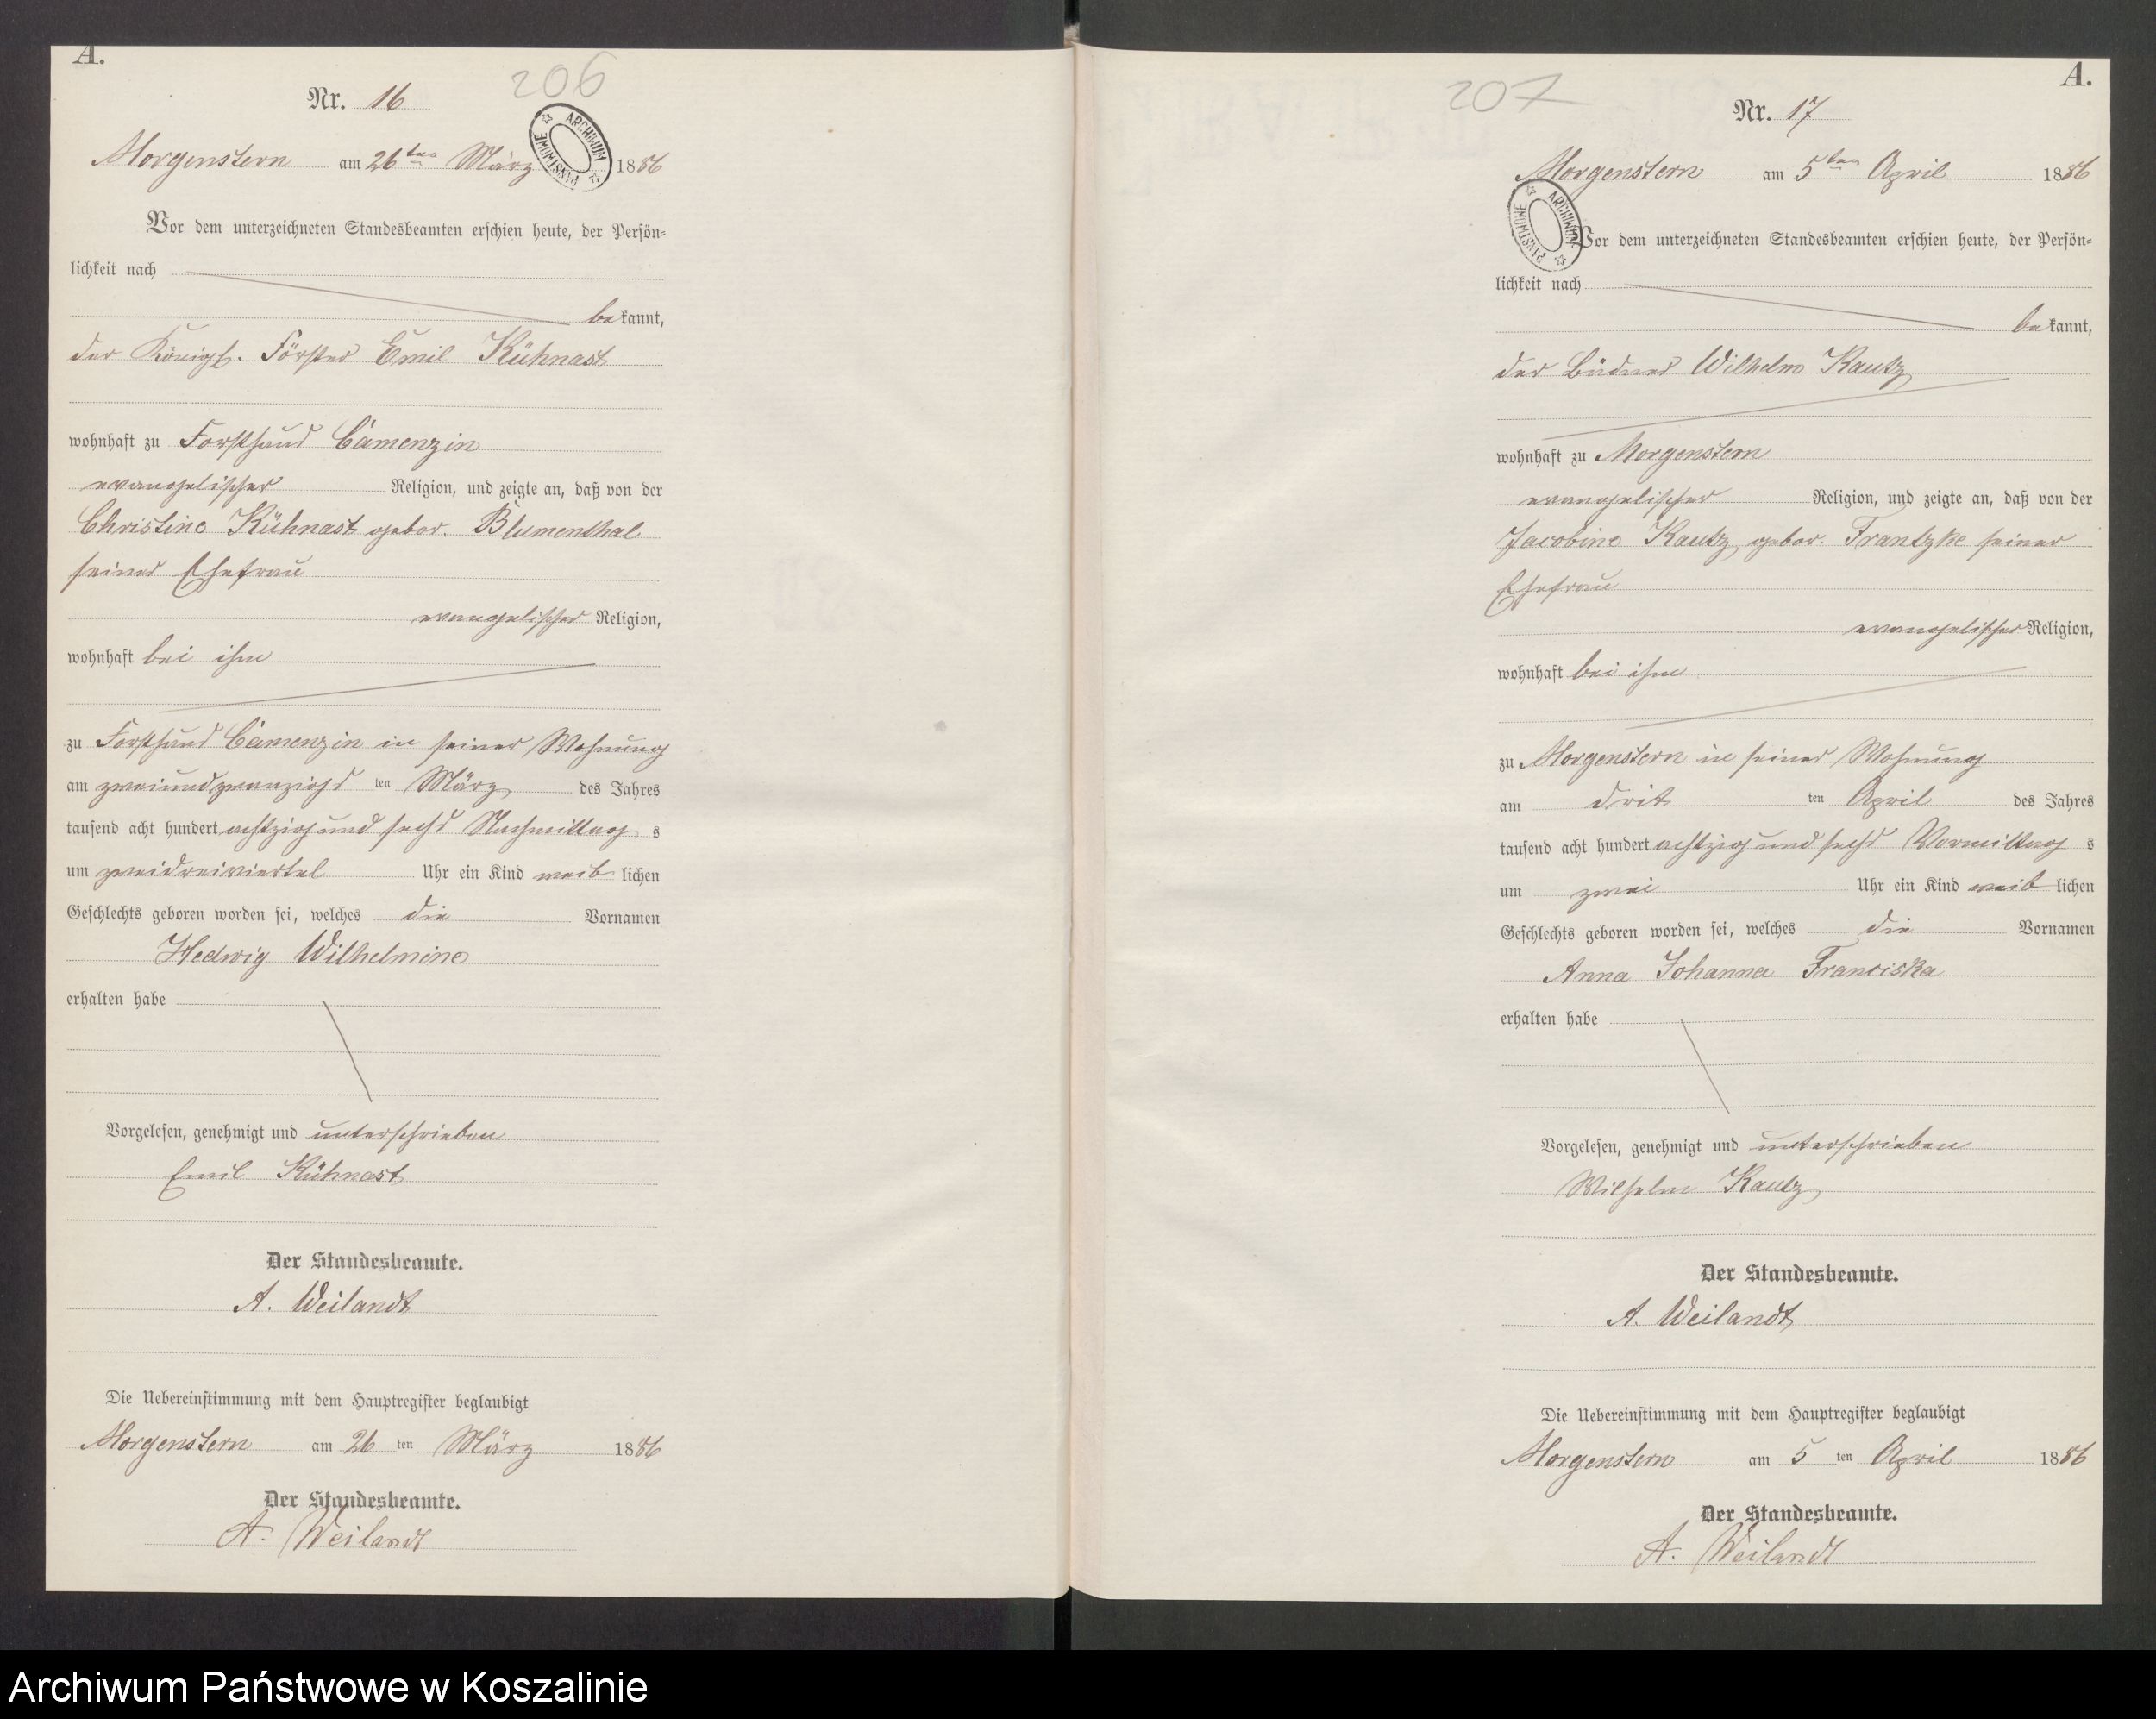 A.
206
Nr. 16
ARCHIWUM PAŃSTWOWE
Morgenstern am 26ten März 1886
Vor dem unterzeichneten Standesbeamten erschien heute, der Persön=
lichkeit nach
bekannt,
der Königl. Förster Emil Kühnast
wohnhaft zu Forsthaus Camenzin
evangelischer Religion, und zeigte an, daß von der
Christine Kühnast gebor. Blumenthal
seiner Ehefrau
evangelischer Religion,
wohnhaft bei ihm
zu Forsthaus Camenzin in seiner Wohnung
am zweiundzwanzigs ten März des Jahres
tausend acht hundert achtzig und sechs Nachmittag s
um zweidreiviertel Uhr ein Kind weib lichen
Geschlechts geboren worden sei, welches die Vornamen
Hedwig Wilhelmine
erhalten habe
Vorgelesen, genehmigt und unterschrieben
Emil Kühnast
Der Standesbeamte.
A. Weilandt
Die Uebereinstimmung mit dem Hauptregister beglaubigt
Morgenstern am 26 ten März 1886
Der Standesbeamte.
A. Weilandt
A.
207
Nr. 17
Morgenstern am 5ten April 1886
ARCHIWUM PAŃSTWOWE
Vor dem unterzeichneten Standesbeamten erschien heute, der Persön=
lichkeit nach
bekannt,
der Büdner Wilhelm Kautz
wohnhaft zu Morgenstern
evangelischer Religion, und zeigte an, daß von der
Jacobine Kautz gebor. Frantzke seiner
Ehefrau
evangelischer Religion,
wohnhaft bei ihm
zu Morgenstern in seiner Wohnung
am drit ten April des Jahres
tausend acht hundert achtzig und sechs Vormittag s
um zwei Uhr ein Kind weib lichen
Geschlechts geboren worden sei, welches die Vornamen
Anna Johanna Franciska
erhalten habe
Vorgelesen, genehmigt und unterschrieben
Wilhelm Kautz
Der Standesbeamte.
A. Weilandt
Die Uebereinstimmung mit dem Hauptregister beglaubigt
Morgenstern am 5 ten April 1886
Der Standesbeamte.
A. Weilandt
Archiwum Państwowe w Koszalinie